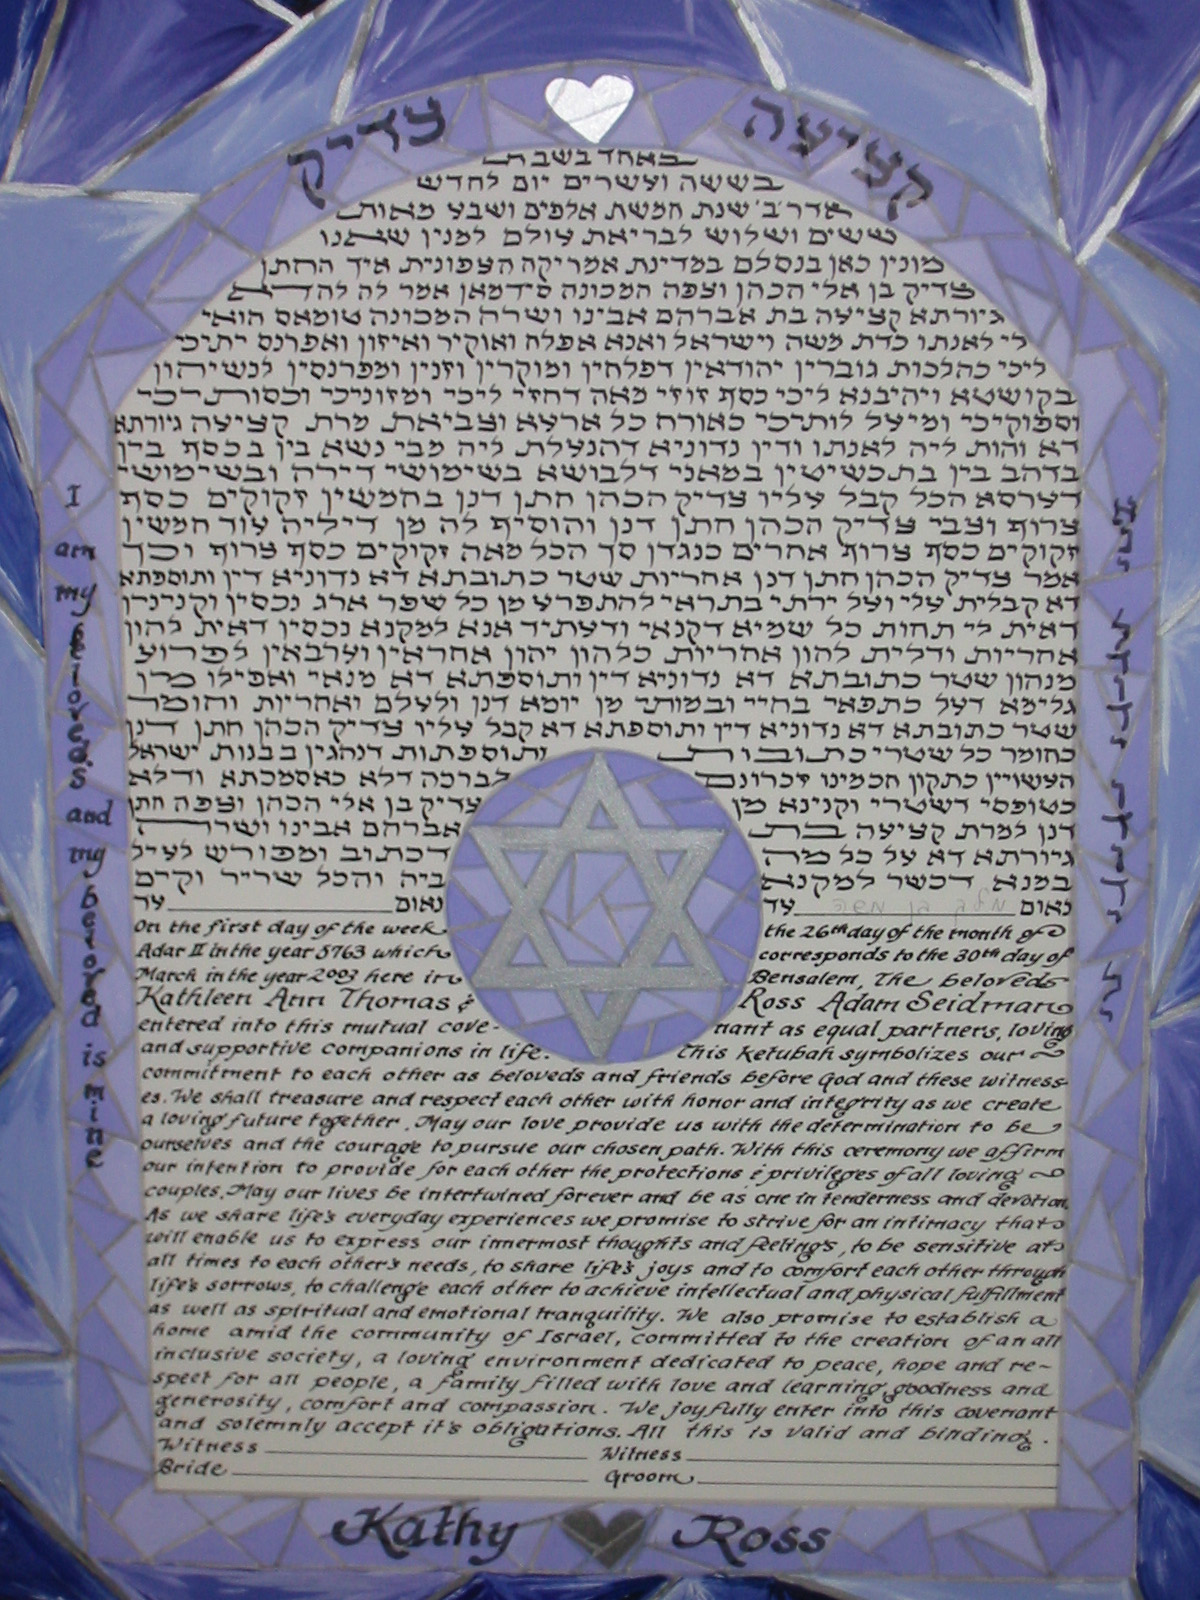 קציעה צדיק
באחד בשבת
בששה ועשרים יום לחדש
אדר ב' שנת חמשת אלפים ושבע מאות
ששים ושלוש לבריאת עולם למנין שאנו
מונין כאן בנסלם במדינת אמריקה הצפונית איך החתן
צדיק בן אלי הכהן וצפה המכונה סידמאן אמר לה להדא
גיורתא קציעה בת אברהם אבינו ושרה המכונה טומאס הואי
לי לאנתו כדת משה וישראל ואנא אפלח ואוקיר ואיזון ואפרנס יתיכי
ליכי כהלכות גוברין יהודאין דפלחין ומוקרין וזנין ומפרנסין לנשיהון
בקושטא ויהיבנא ליכי כסף זוזי מאה דחזי ליכי ומזוניכי וכסותיכי
וספוקיכי ומיעל לותיכי כאורח כל ארעא וצביאת מרת קציעה גיורתא
דא והות ליה לאנתו ודין נדוניא דהנעלת ליה מבי נשא בין בכסף בין
בדהב בין בתכשיטין במאני דלבושא בשימושי דירה ובשימושי
דערסא הכל קבל עליו צדיק הכהן חתן דנן בחמשין זקוקים כסף
צרוף וצבי צדיק הכהן חתן דנן והוסיף לה מן דיליה עוד חמשין
זקוקים כסף צרוף אחרים כנגדן סך הכל מאה זקוקים כסף צרוף וכך
אמר צדיק הכהן חתן דנן אחריות שטר כתובתא דא נדוניא דין ותוספתא
דא קבלית עלי ועל ירתי בתראי להתפרע מן כל שפר ארג נכסין וקנינין
דאית לי תחות כל שמיא דקנאי ודעתיד אנא למקנא נכסין דאית להון
אחריות ודלית להון אחריות כלהון יהון אחראין וערבאין לפרוע
מנהון שטר כתובתא דא נדוניא דין ותוספתא דא מנאי ואפילו מן
גלימא דעל כתפאי בחיי ובמותי מן יומא דנן ולעלם ואחריות וחומר
שטר כתובתא דא נדוניא דין ותוספתא דא קבל עליו צדיק הכהן חתן דנן
כחומר כל שטרי כתובות ותוספתות דנהגין בבנות ישראל
העשויין כתקון חכמינו זיכרונם לברכה דלא כאסמכתא ודלא
כטופסי דשטרי וקנינא מן צדיק בן אלי הכהן וצפה חתן
דנן למרת קציעה בת אברהם אבינו ושרה
גיורתא דא על כל מה דכתוב ומפורש לעיל
במנא דכשר למקנא ביה והכל שריר וקים
נאום בן משה עד נאום עד
On the first day of the week the 26th day of the month of
Adar II in the year 5763 which corresponds to the 30th day of
March in the year 2003 here in Bensalem, The beloveds
Kathleen Ann Thomas & Ross Adam Seidman
entered into this mutual cove- nant as equal partners, loving
and supportive companions in life. This Ketubah symbolizes our
commitment to each other as beloveds and friends before God and these witness-
es. We shall treasure and respect each other with honor and integrity as we create
a loving future together. May our love provide us with the determination to be
ourselves and the courage to pursue our chosen path. With this ceremony we affirm
our intention to provide for each other the protections & privileges of all loving
couples. May our lives be intertwined forever and be as one in tenderness and devotion.
As we share life's everyday experiences we promise to strive for an intimacy that
will enable us to express our innermost thoughts and feelings, to be sensitive at
all times to each other's needs, to share life's joys and to comfort each other through
life's sorrows, to challenge each other to achieve intellectual and physical fulfillment
as well as spiritual and emotional tranquility. We also promise to establish a
home amid the community of Israel, committed to the creation of an all
inclusive society, a loving environment dedicated to peace, hope and re-
spect for all people, a family filled with love and learning, goodness and
generosity, comfort and compassion. We joyfully enter into this covenant
and solemnly accept it's obligations. All this is valid and binding.
Witness Witness
Bride Groom
Kathy Ross
I am my beloved's and my beloved is mine
אני לדודי ודודי לי